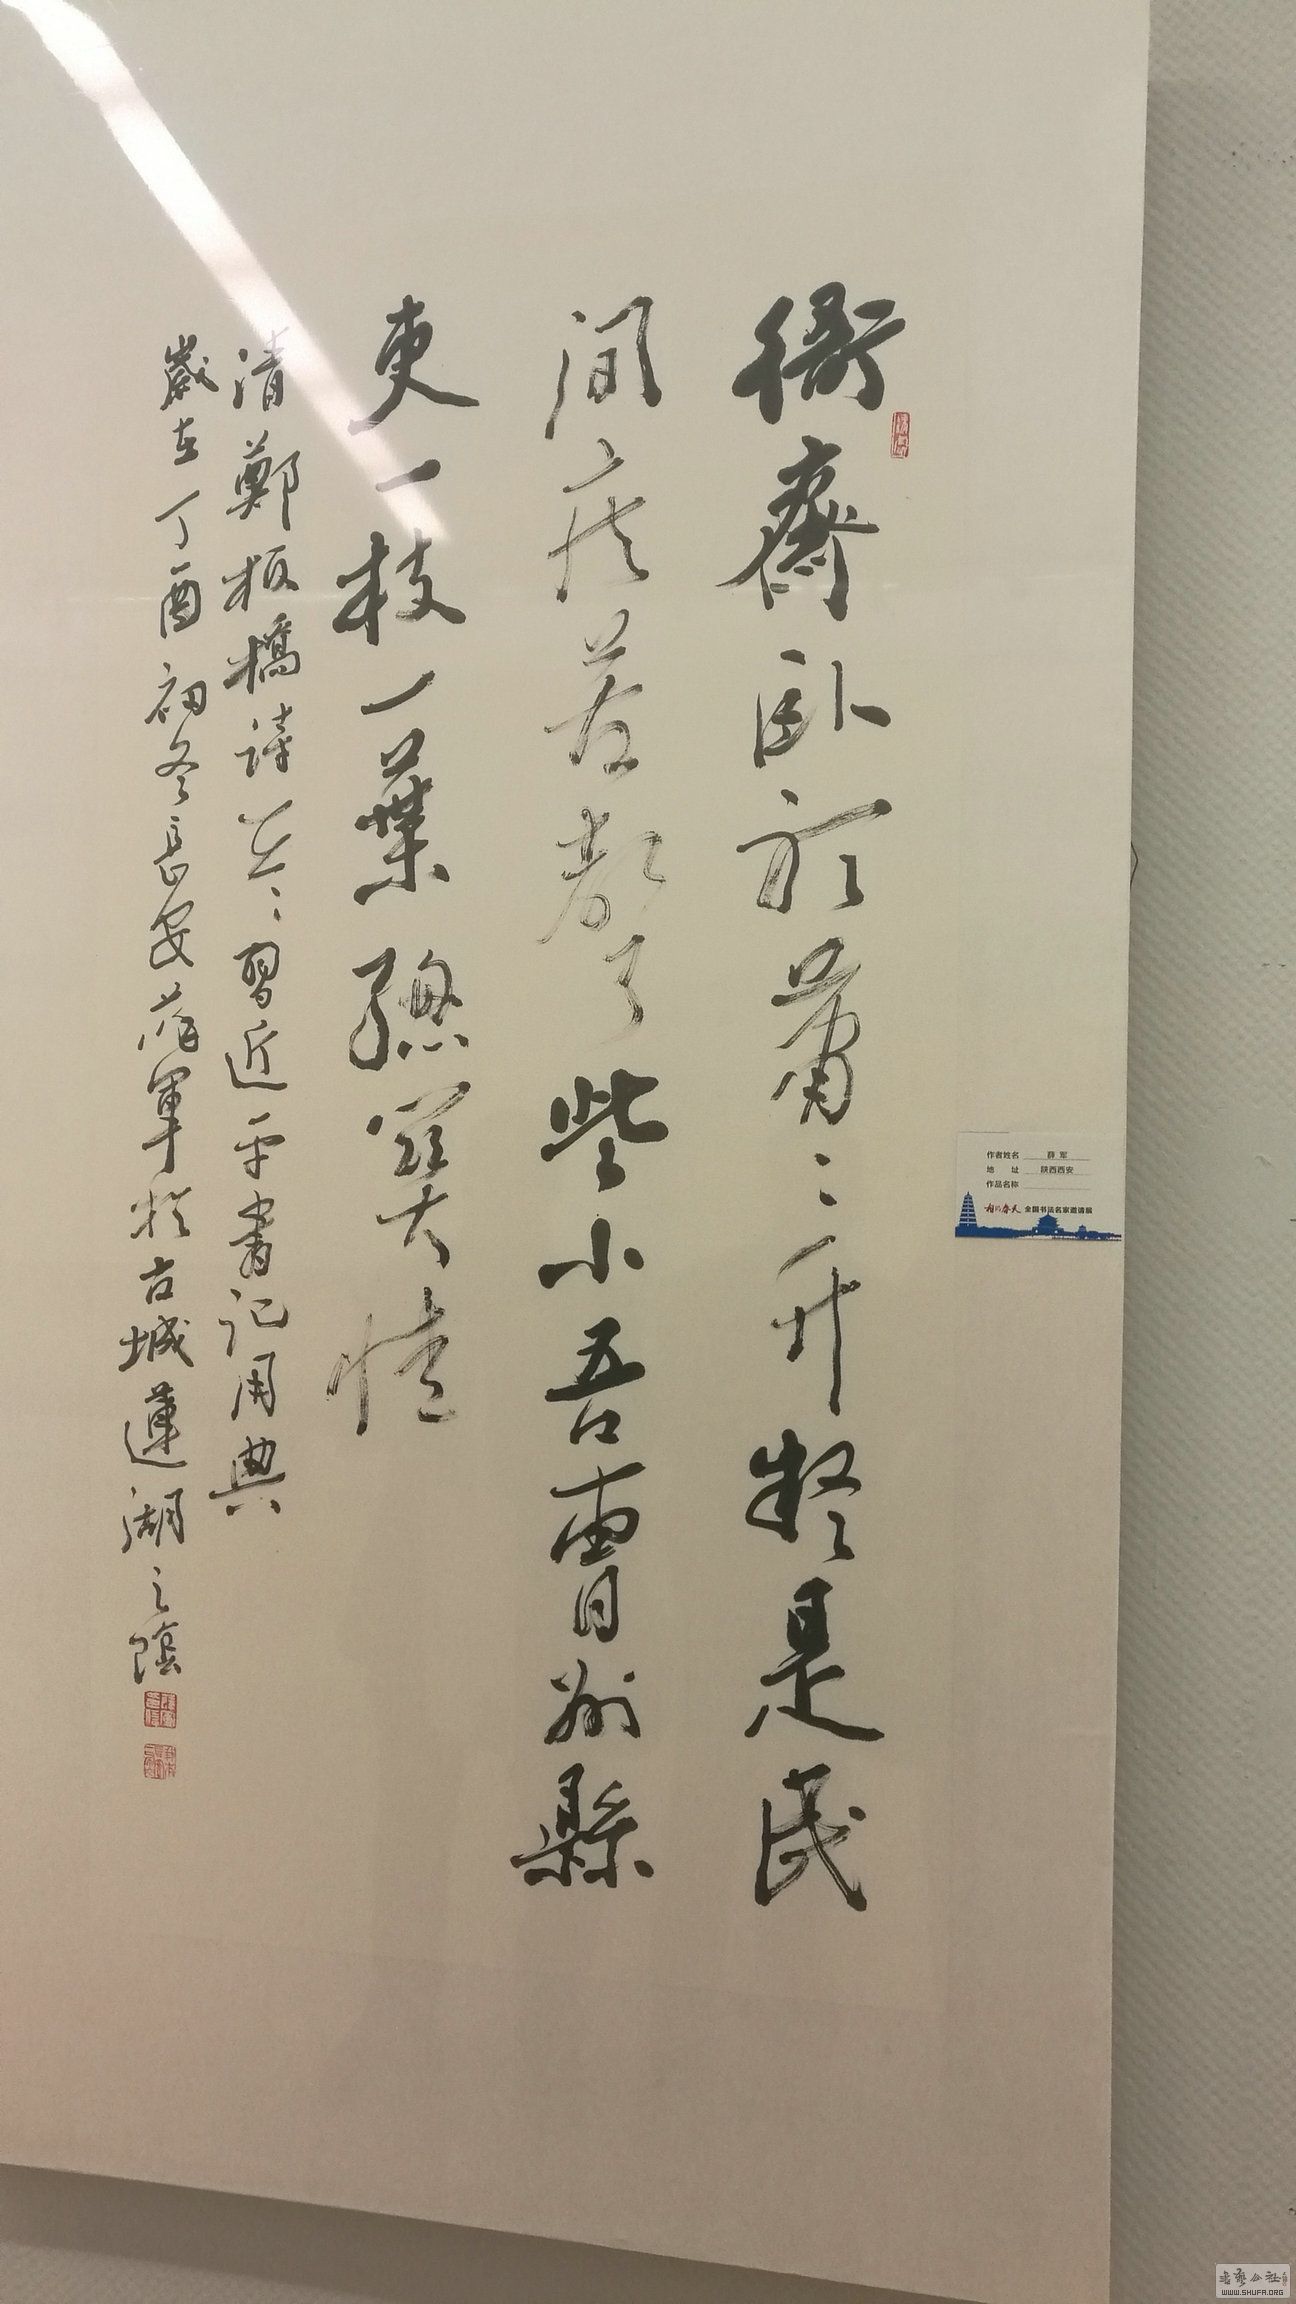 衙齋臥聽蕭〻竹疑是民
間疾苦聲些小吾曹州縣
吏一枝一葉總關情
清鄭板橋詩習近平書記用典
歲在丁酉初冬長安薛軍於古城蓮湖之陰
作者姓名 薛 军
地 址 陕西西安
作品名称
相约春天 全国书法名家邀请展
书艺公社
WWW.SHUFA.ORG